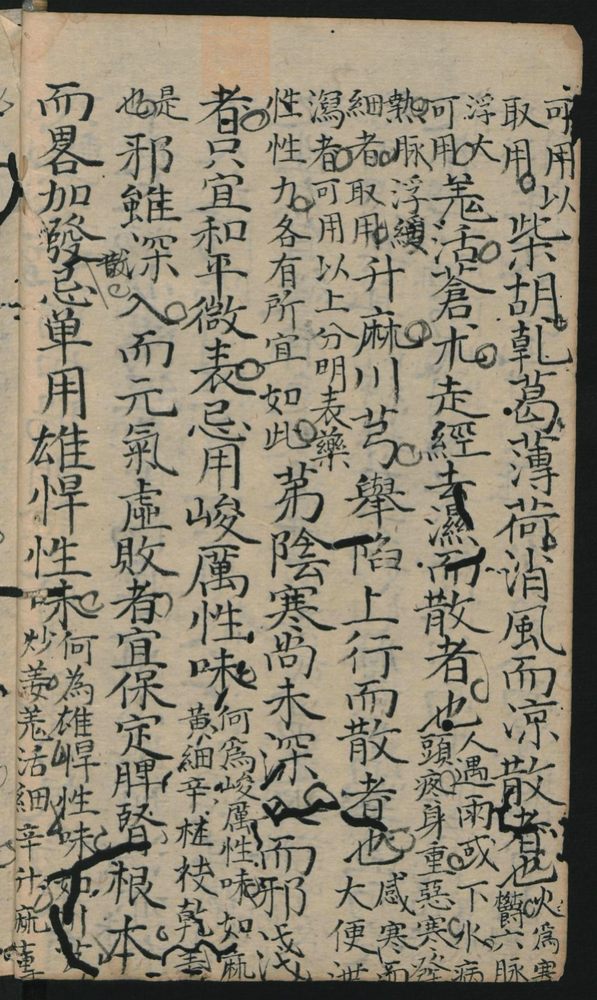 可用以
取用柴胡乹葛薄荷消風而凉散者也
火為寒
欝六脉
浮大
可用羗活蒼朮走經去濕而散者也
人遇雨或下水病
頭疼身重惡寒發
熱脉浮緩
細者取用升麻川芎舉陷上行而散者也
感寒而
大便泄
瀉者可用以上分明表藥
性性九各有所宜如此
苐陰寒尚未深而邪浅
者只宜和平微表忌用峻厲性味
何為峻厲性味如麻
黃細辛桂枝乾姜
是
也
邪雖深入而元氣虛敗者宜保定脾腎根本
而畧加發散忌单用雄悍性味
何為雄悍性味如川芎
炒姜羗活細辛升麻